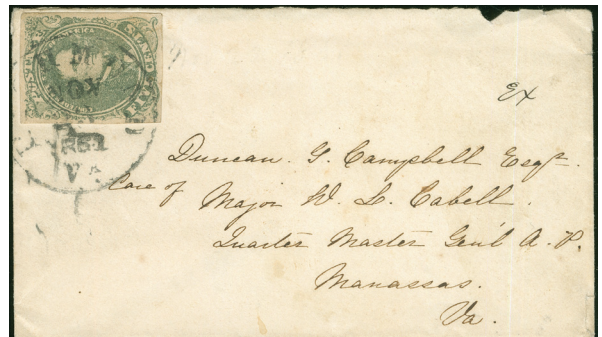 NOV
1861
VA
Ex
Duncan. G. Campbell Esqr.
Care of Major W. L. Cabell.
Quarter Master Genl. A. P.
Manassas.
Va.